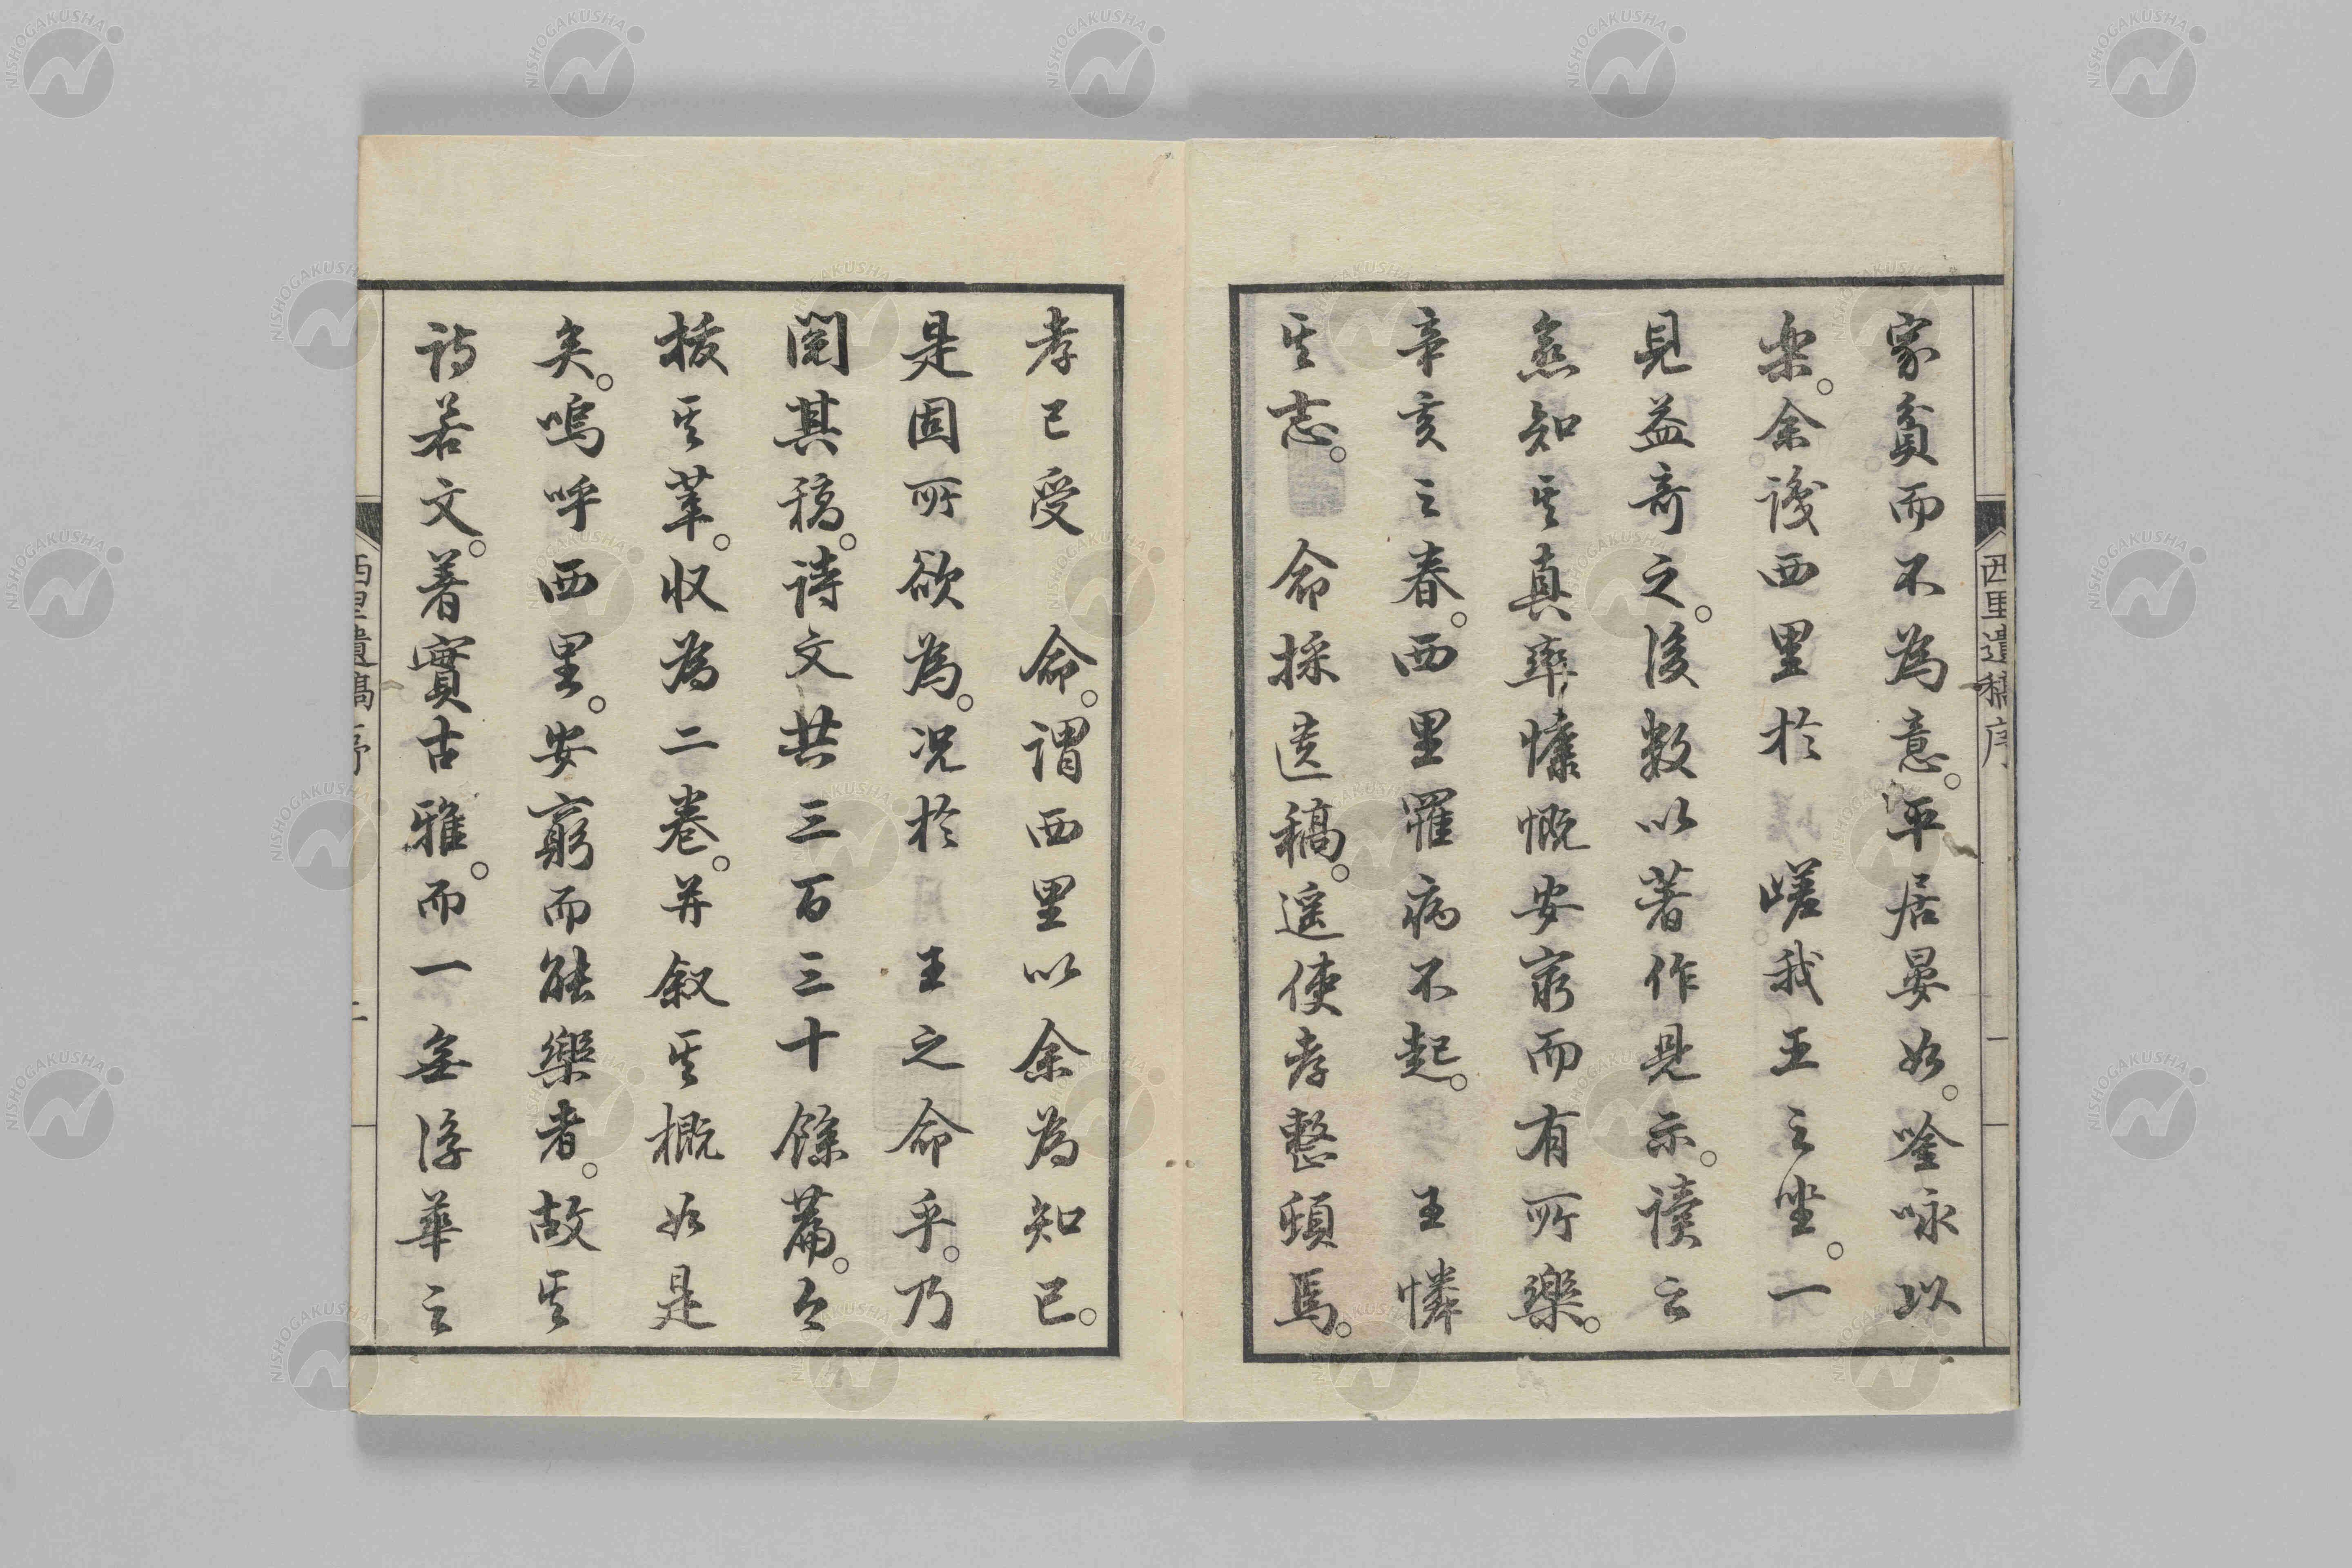 家貧而不為意。平居晏如。唫咏以
楽。余識西里於 嵯我王之坐。一
見益奇之。後数以著作見示。讀之
益知其真率慷慨安窮而有所樂。
辛亥之春。西里罹病不起。 王憐
其志。 命採遺稿。遥使孝整頓焉。
西里遺稿序
一
孝已受 命。謂西里以余為知己。
是固所欲為。況於 王之命乎。乃
閲其稿。詩文共三百三十餘篇。今
拔其萃。収為二巻。并叙其概如是
矣。嗚呼西里。安窮而能樂者。故其
詩若文。着實古雅。而一無浮華之
西里遺稿序
二
NISHOGAKUSHA